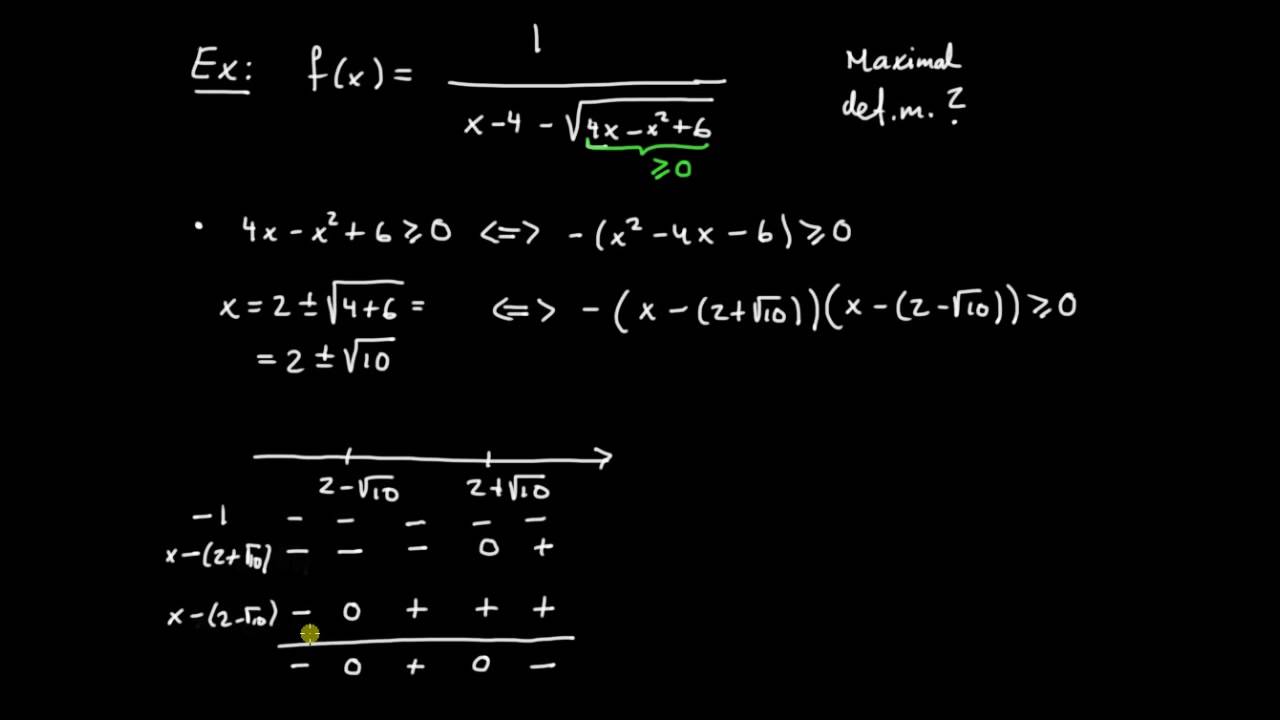 Ex: f(x) = 1 / (x-4 - √(4x-x²+6)) Maximal def.m. ?
≥0
• 4x - x² + 6 ≥ 0 <=> -(x² - 4x - 6) ≥ 0
x = 2 ± √(4+6) = <=> - (x - (2+√10))(x - (2-√10)) ≥ 0
= 2 ± √10
2-√10 2+√10
-1 - - - - -
x-(2+√10) - - - 0 +
x-(2-√10) - 0 + + +
- 0 + 0 -